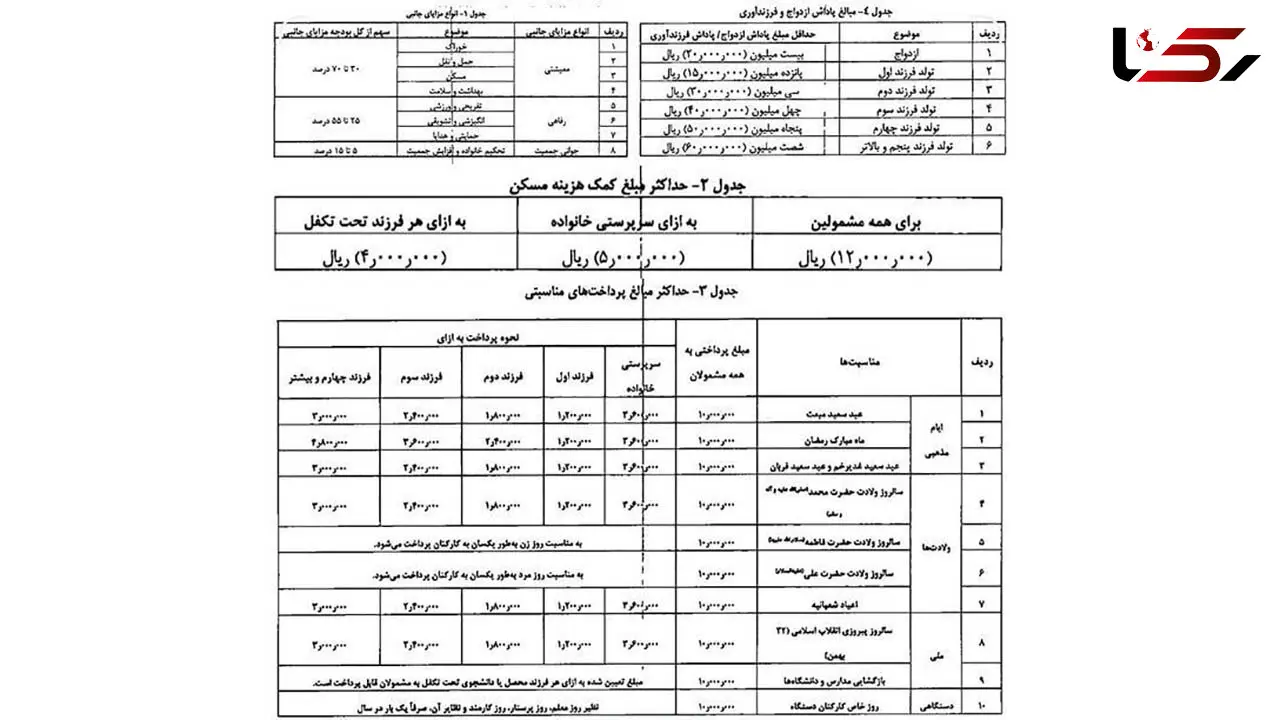 جدول ۴- مبالغ پاداش ازدواج و فرزندآوری
ردیف موضوع حداقل مبلغ پاداش ازدواج/ پاداش فرزندآوری
۱ ازدواج بیست میلیون (۲۰٫۰۰۰٫۰۰۰) ریال
۲ تولد فرزند اول پانزده میلیون (۱۵٫۰۰۰٫۰۰۰) ریال
۳ تولد فرزند دوم سی میلیون (۳۰٫۰۰۰٫۰۰۰) ریال
۴ تولد فرزند سوم چهل میلیون (۴۰٫۰۰۰٫۰۰۰) ریال
۵ تولد فرزند چهارم پنجاه میلیون (۵۰٫۰۰۰٫۰۰۰) ریال
۶ تولد فرزند پنجم و بالاتر شصت میلیون (۶۰٫۰۰۰٫۰۰۰) ریال
جدول ۱- انواع مزایای جانبی
ردیف انواع مزایای جانبی موضوع سهم از کل بودجه مزایای جانبی
۱ معیشتی خوراک ۳۰ تا ۷۰ درصد
۲ حمل و نقل
۳ مسکن
۴ بهداشت و سلامت
۵ رفاهی تفریحی و ورزشی ۲۵ تا ۵۵ درصد
۶ انگیزشی و تشویقی
۷ حمایتی و هدایا
۸ جوانی جمعیت تحکیم خانواده و افزایش جمعیت ۵ تا ۱۵ درصد
رکنا
جدول ۲- حداکثر مبلغ کمک هزینه مسکن
برای همه مشمولین به ازای سرپرستی خانواده به ازای هر فرزند تحت تکفل
(۱۲٫۰۰۰٫۰۰۰) ریال (۵٫۰۰۰٫۰۰۰) ریال (۴٫۰۰۰٫۰۰۰) ریال
جدول ۳- حداکثر مبالغ پرداخت‌های مناسبتی
ردیف مناسبت‌ها مبلغ پرداختی به همه مشمولان نحوه پرداخت به ازای
سرپرستی خانواده فرزند اول فرزند دوم فرزند سوم فرزند چهارم و بیشتر
۱ ایام مذهبی عید سعید مبعث ۱۰٫۰۰۰٫۰۰۰ ۳٫۶۰۰٫۰۰۰ ۱٫۲۰۰٫۰۰۰ ۱٫۸۰۰٫۰۰۰ ۲٫۴۰۰٫۰۰۰ ۳٫۰۰۰٫۰۰۰
۲ ماه مبارک رمضان ۱۰٫۰۰۰٫۰۰۰ ۳٫۶۰۰٫۰۰۰ ۱٫۲۰۰٫۰۰۰ ۲٫۴۰۰٫۰۰۰ ۳٫۶۰۰٫۰۰۰ ۴٫۸۰۰٫۰۰۰
۳ عید سعید غدیرخم و عید سعید قربان ۱۰٫۰۰۰٫۰۰۰ ۳٫۶۰۰٫۰۰۰ ۱٫۲۰۰٫۰۰۰ ۱٫۸۰۰٫۰۰۰ ۲٫۴۰۰٫۰۰۰ ۳٫۰۰۰٫۰۰۰
۴ ولادت‌ها سالروز ولادت حضرت محمد ۱۰٫۰۰۰٫۰۰۰ ۳٫۶۰۰٫۰۰۰ ۱٫۲۰۰٫۰۰۰ ۱٫۸۰۰٫۰۰۰ ۲٫۴۰۰٫۰۰۰ ۳٫۰۰۰٫۰۰۰
۵ سالروز ولادت حضرت فاطمه ۱۰٫۰۰۰٫۰۰۰ به مناسبت روز زن به‌طور یکسان به کارکنان پرداخت می‌شود.
۶ سالروز ولادت حضرت علی ۱۰٫۰۰۰٫۰۰۰ به مناسبت روز مرد به‌طور یکسان به کارکنان پرداخت می‌شود.
۷ اعیاد شعبانیه ۱۰٫۰۰۰٫۰۰۰ ۳٫۶۰۰٫۰۰۰ ۱٫۲۰۰٫۰۰۰ ۱٫۸۰۰٫۰۰۰ ۲٫۴۰۰٫۰۰۰ ۳٫۰۰۰٫۰۰۰
۸ ملی سالروز پیروزی انقلاب اسلامی (۲۲ بهمن) ۱۰٫۰۰۰٫۰۰۰ ۳٫۶۰۰٫۰۰۰ ۱٫۲۰۰٫۰۰۰ ۱٫۸۰۰٫۰۰۰ ۲٫۴۰۰٫۰۰۰ ۳٫۰۰۰٫۰۰۰
۹ بازگشایی مدارس و دانشگاه‌ها ۱۰٫۰۰۰٫۰۰۰ مبلغ تعیین شده به ازای هر فرزند محصل یا دانشجوی تحت تکفل به مشمولان قابل پرداخت است.
۱۰ دستگاهی روز خاص کارکنان دستگاه ۱۰٫۰۰۰٫۰۰۰ نظیر روز معلم، روز پرستار، روز کارمند و نظایر آن، صرفاً یک بار در سال